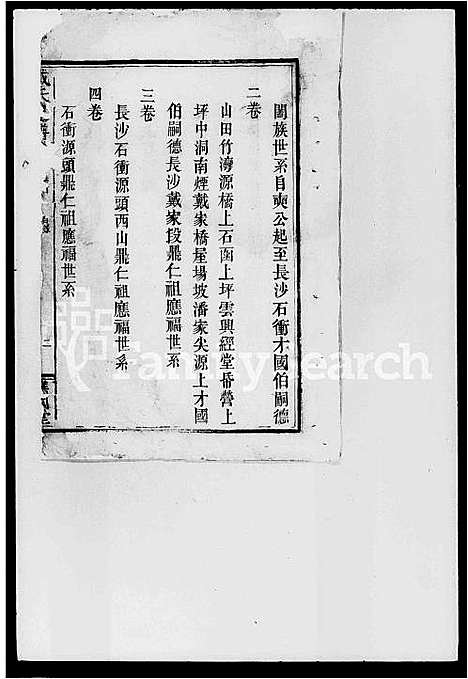 闔族世系自奭公起至長沙石衝才國伯嗣德
二卷
山田竹灣源橋上石園上坪雲興經堂番營上
坪中洞南煙戴家橋屋場坡潘家尖源上才國
伯嗣德長沙戴家段鼎仁祖應福世系
三卷
長沙石衝源頭西山鼎仁祖應福世系
四卷
石衝源頭鼎仁祖應福世系
二
FamilySearch